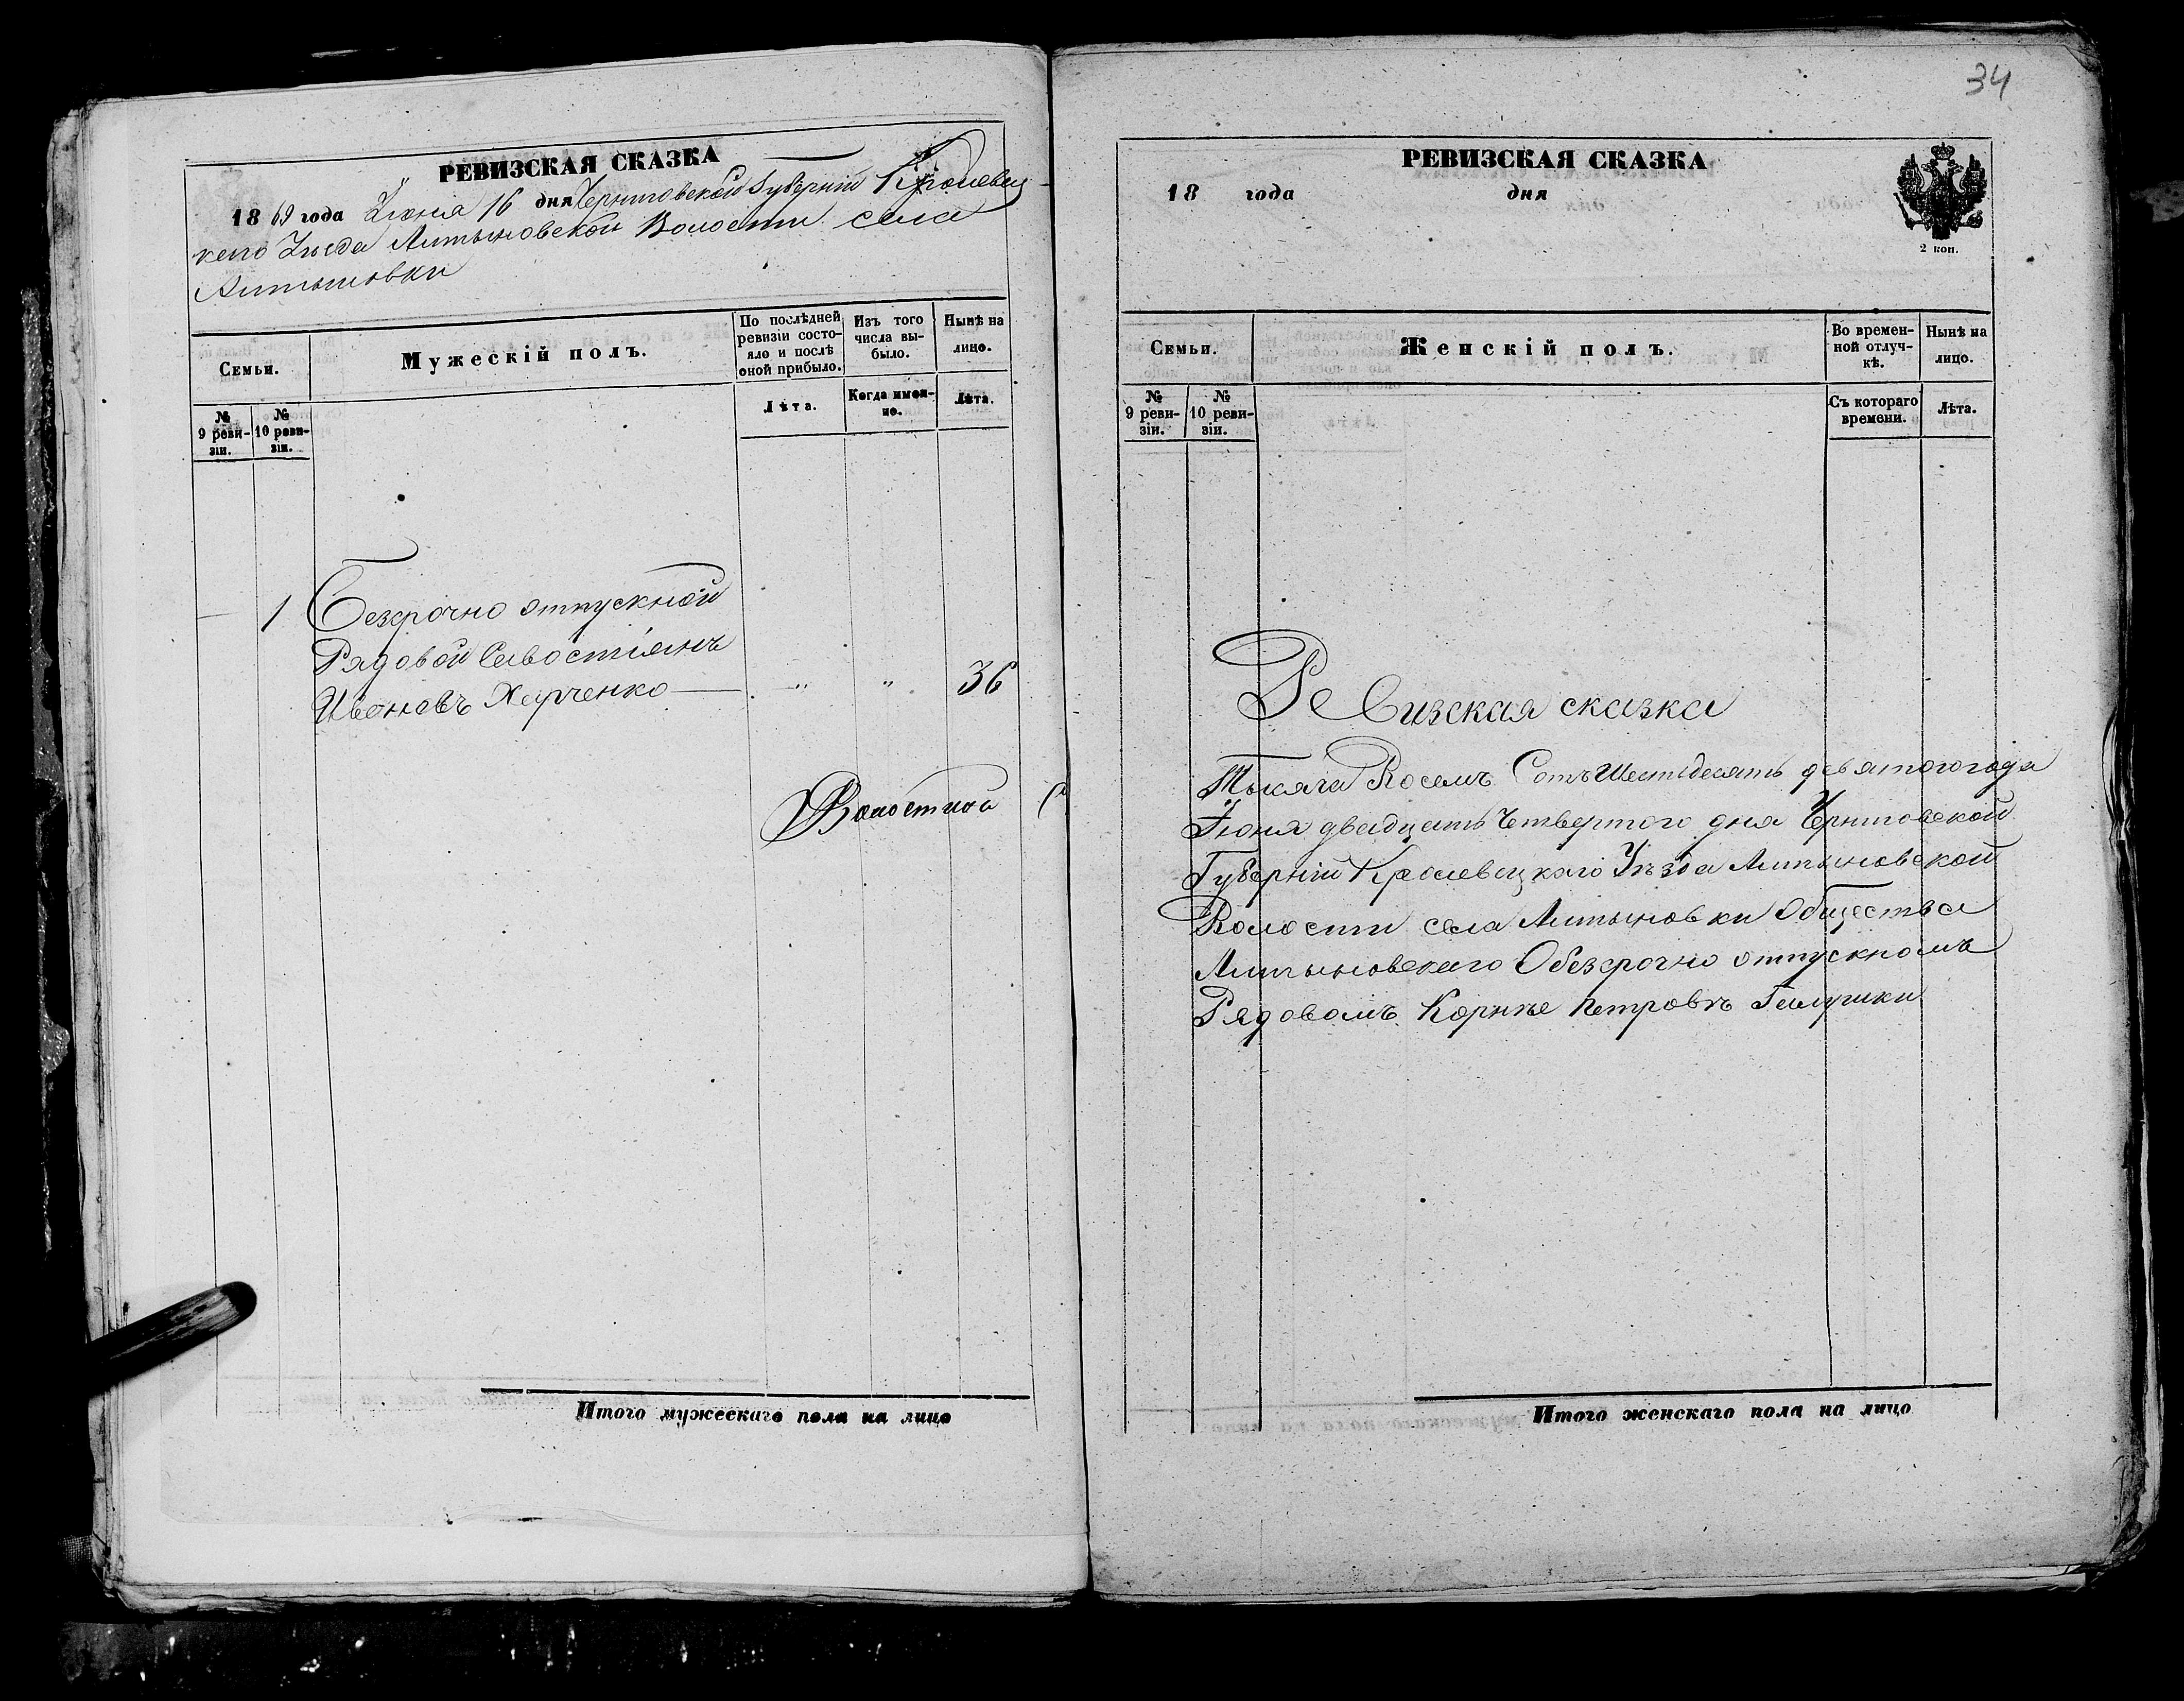 РЕВИЗСКАЯ СКАЗКА
1869 года Іюня 16 дня Черниговской Губерніи Кролевец-
каго Уезда Алтыновской Волости села
Алтыновки
Семьи.
Мужескій полъ.
По послѣдней ревизіи состо-
яло и послѣ оной прибыло.
Изъ того числа вы-
было.
Нынѣ на лицо.
№ 9 реви-
зіи.
№ 10 реви-
зіи.
Лѣта.
Когда имен-
но.
Лѣта.
1 Безсрочно отпускной
Рядовой Савостіянъ
Ивановъ Харченко — " " 36
Волостной
Итого мужескаго пола на лицо
34
РЕВИЗСКАЯ СКАЗКА
18 года дня
2 коп.
Семьи.
Женскій полъ.
Во времен-
ной отлуч-
кѣ.
Нынѣ на
лицо.
№ 9 реви-
зіи.
№ 10 реви-
зіи.
Съ котораго
времени.
Лѣта.
Ревизская сказка
Тысяча Восемъ Сотъ Шестьдесятъ девятого года
Іюня двадцать Четвертого дня Черниговской
Губерніи Кролевецкаго Уѣзда Алтыновской
Волости села Алтыновки Общества
Алтыновскаго Обезсрочно отпускномъ
Рядовомъ Корнѣе Петровъ Галушки
Итого женскаго пола на лицо